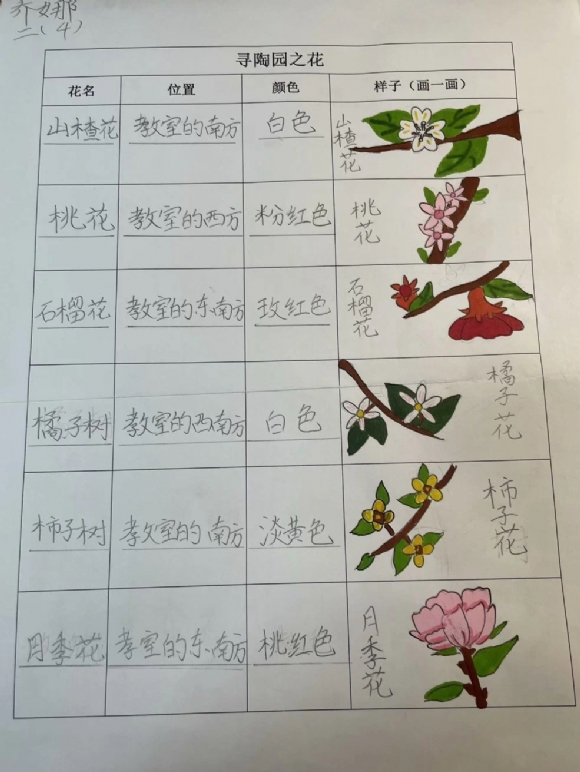 乔娜
二(4)
寻陶园之花
花名 位置 颜色 样子（画一画）
山楂花 教室的南方 白色 山楂花
桃花 教室的西方 粉红色 桃花
石榴花 教室的东南方 玫红色 石榴花
橘子树 教室的西南方 白色 橘子花
柿子树 教室的南方 淡黄色 柿子花
月季花 教室的东南方 桃红色 月季花